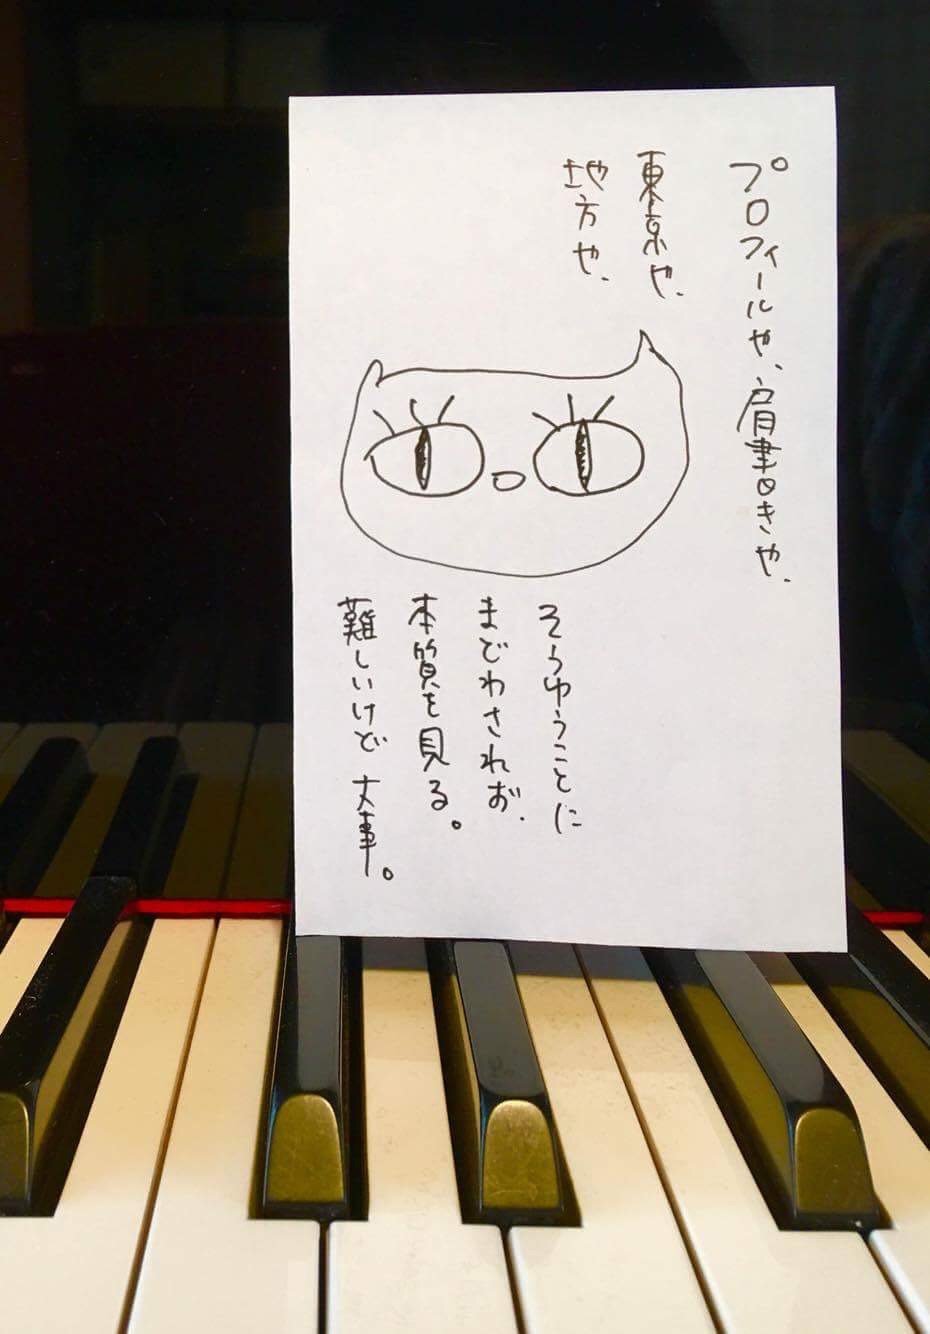 プロフィールや、肩書きや、
東京や、
地方や、
そうゆうことに
まどわされず、
本質を見る。
難しいけど大事。